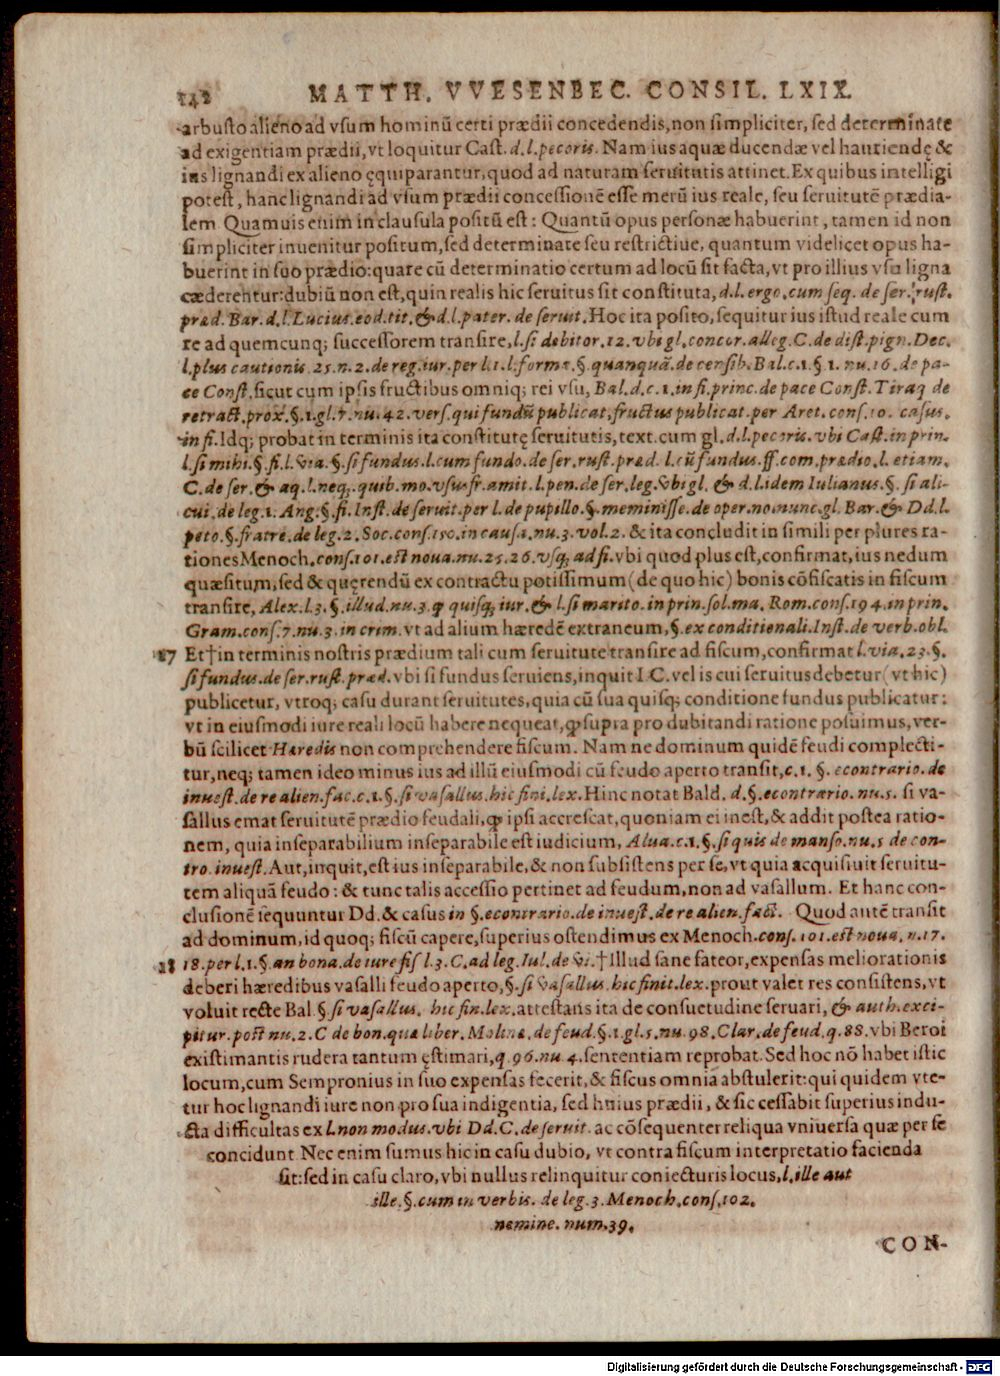 242 MATTH. VVESENBEC. CONSIL. LXIX.
arbusto alieno ad vsum hominū certi prædii concedendis, non simpliciter, sed determinate
ad exigentiam prædii, vt loquitur Cast. d.l.pecoris. Nam ius aquæ ducendæ vel hauriendę &
ius lignandi ex alieno ęquiparantur, quod ad naturam seruitutis attinet. Ex quibus intelligi
potest, hanc lignandi ad vsum prædii concessionē esse merū ius reale, seu seruitutē prædia-
lem Quamuis enim in clausula positū est: Quantū opus personæ habuerint, tamen id non
simpliciter inuenitur positum, sed determinate seu restrictiue, quantum videlicet opus ha-
buerint in suo prædio: quare cū determinatio certum ad locū sit facta, vt pro illius vsu ligna
cæderentur: dubiū non est, quin realis hic seruitus sit constituta, d.l. ergo. cum seq. de ser. rust.
præd. Bar. d.l. Lucius. eod. tit. & d.l. pater. de seruit. Hoc ita posito, sequitur ius istud reale cum
re ad quemcunq; successorem transire, l. si debitor. 12. vbi gl. concor. alleg. C. de dist. pign. Dec.
l. plus cautionis 25. n. 2. de reg. iur. per l. 1. l. forma. §. quanquā. de censib. Bal. c. 1. §. 1. nu. 16. de pa-
ce Const. sicut cum ipsis fructibus omniq; rei vsu, Bal. d.c. 1. in fi. princ. de pace Const. Tiraq de
retract. prox. §. 1. gl. 7. nu. 42. vers. qui fundū publicat, fructus publicat. per Aret. cons. 10. casus.
in fi. Idq; probat in terminis ita constitutę seruitutis, text. cum gl. d.l. pecoris. vbi Cast. in prin.
l. si mihi. §. fi. l. via. §. si fundus. l. cum fundo. de ser. rust. præd. l. cū fundus. ff. com. prædio. l. etiam.
C. de ser. & aq. l. neq; quib. mo. vsu fr. amit. l. pen. de ser. leg. vbi gl. & d.l. idem Iulianus. §. si ali-
cui. de leg. 1. Ang. §. fi. Inst. de seruit. per l. de pupillo. §. meminisse. de oper. no. nunc. gl. Bar. & Dd. l.
peto. §. fratre. de leg. 2. Soc. cons. 150. in causa. nu. 3. vol. 2. & ita concludit in simili per plures ra-
tiones Menoch. cons. 101. est noua. nu. 25. 26. vsq; ad fi. vbi quod plus est, confirmat, ius nedum
quæsitum, sed & quęrendū ex contractu potissimum (de quo hic) bonis cōfiscatis in fiscum
transire, Alex. l. 3. §. illud. nu. 3. ꝙ quisq; iur. & l. si marito. in prin. sol. ma. Rom. cons. 194. in prin.
Gram. cons. 7. nu. 3. in crim. vt ad alium hæredē extraneum, §. ex conditionali. Inst. de verb. obl.
27 Et † in terminis nostris prædium tali cum seruitute transire ad fiscum, confirmat l. via. 23. §.
si fundus. de ser. rust. præd. vbi si fundus seruiens, inquit I.C. vel is cui seruitus debetur (vt hic)
publicetur, vtroq; casu durant seruitutes, quia cū sua quisq; conditione fundus publicatur:
vt in eiusmodi iure reali locū habere nequeat, ꝙ supra pro dubitandi ratione posuimus, ver-
bū scilicet Hæredis non comprehendere fiscum. Nam ne dominum quidē feudi complecti-
tur, neq; tamen ideo minus ius ad illū eiusmodi cū feudo aperto transit, c. 1. §. econtrario. de
inuest. de re alien. fac. c. 1. §. si vasallus. hic fini. lex. Hinc notat Bald. d. §. econtrario. nu. 5. si va-
sallus emat seruitutē prædio feudali, ꝙ ipsi accrescat, quoniam ei inest, & addit postea ratio-
nem, quia inseparabilium inseparabile est iudicium, Alua. c. 1. §. si quis de manso. nu. 5 de con-
tro. inuest. Aut, inquit, est ius inseparabile, & non subsistens per se, vt quia acquisiuit seruitu-
tem aliquā feudo: & tunc talis accessio pertinet ad feudum, non ad vasallum. Et hanc con-
clusionē sequuntur Dd. & casus in §. econtrario. de inuest. de re alien. fact. Quod autē transit
ad dominum, id quoq; fiscū capere, superius ostendimus ex Menoch. cons. 101. est noua. n. 17.
28 18. per l. 1. §. an bona. de iure fis l. 3. C. ad leg. Iul. de vi. † Illud sane fateor, expensas meliorationis
deberi hæredibus vasalli feudo aperto, §. si vasallus. hic finit. lex. prout valet res consistens, vt
voluit recte Bal §. si vasallus. hic fin. lex. attestans ita de consuetudine seruari, & auth. exci-
pitur. post nu. 2. C de bon. quæ liber. Molinæ. de feud. §. 1. gl. 5. nu. 98. Clar. de feud. q. 88. vbi Beroi
existimantis rudera tantum ęstimari, q. 96. nu. 4. sententiam reprobat. Sed hoc nō habet istic
locum, cum Sempronius in suo expensas fecerit, & fiscus omnia abstulerit: qui quidem vte-
tur hoc lignandi iure non pro sua indigentia, sed huius prædii, & sic cessabit superius indu-
cta difficultas ex l. non modus. vbi Dd. C. de seruit. ac cōsequenter reliqua vniuersa quæ per se
concidunt Nec enim sumus hic in casu dubio, vt contra fiscum interpretatio facienda
sit: sed in casu claro, vbi nullus relinquitur coniecturis locus, l. ille aut
ille. §. cum in verbis. de leg. 3. Menoch. cons. 102.
nemine. num. 39.
CON-
Digitalisierung gefördert durch die Deutsche Forschungsgemeinschaft - DFG